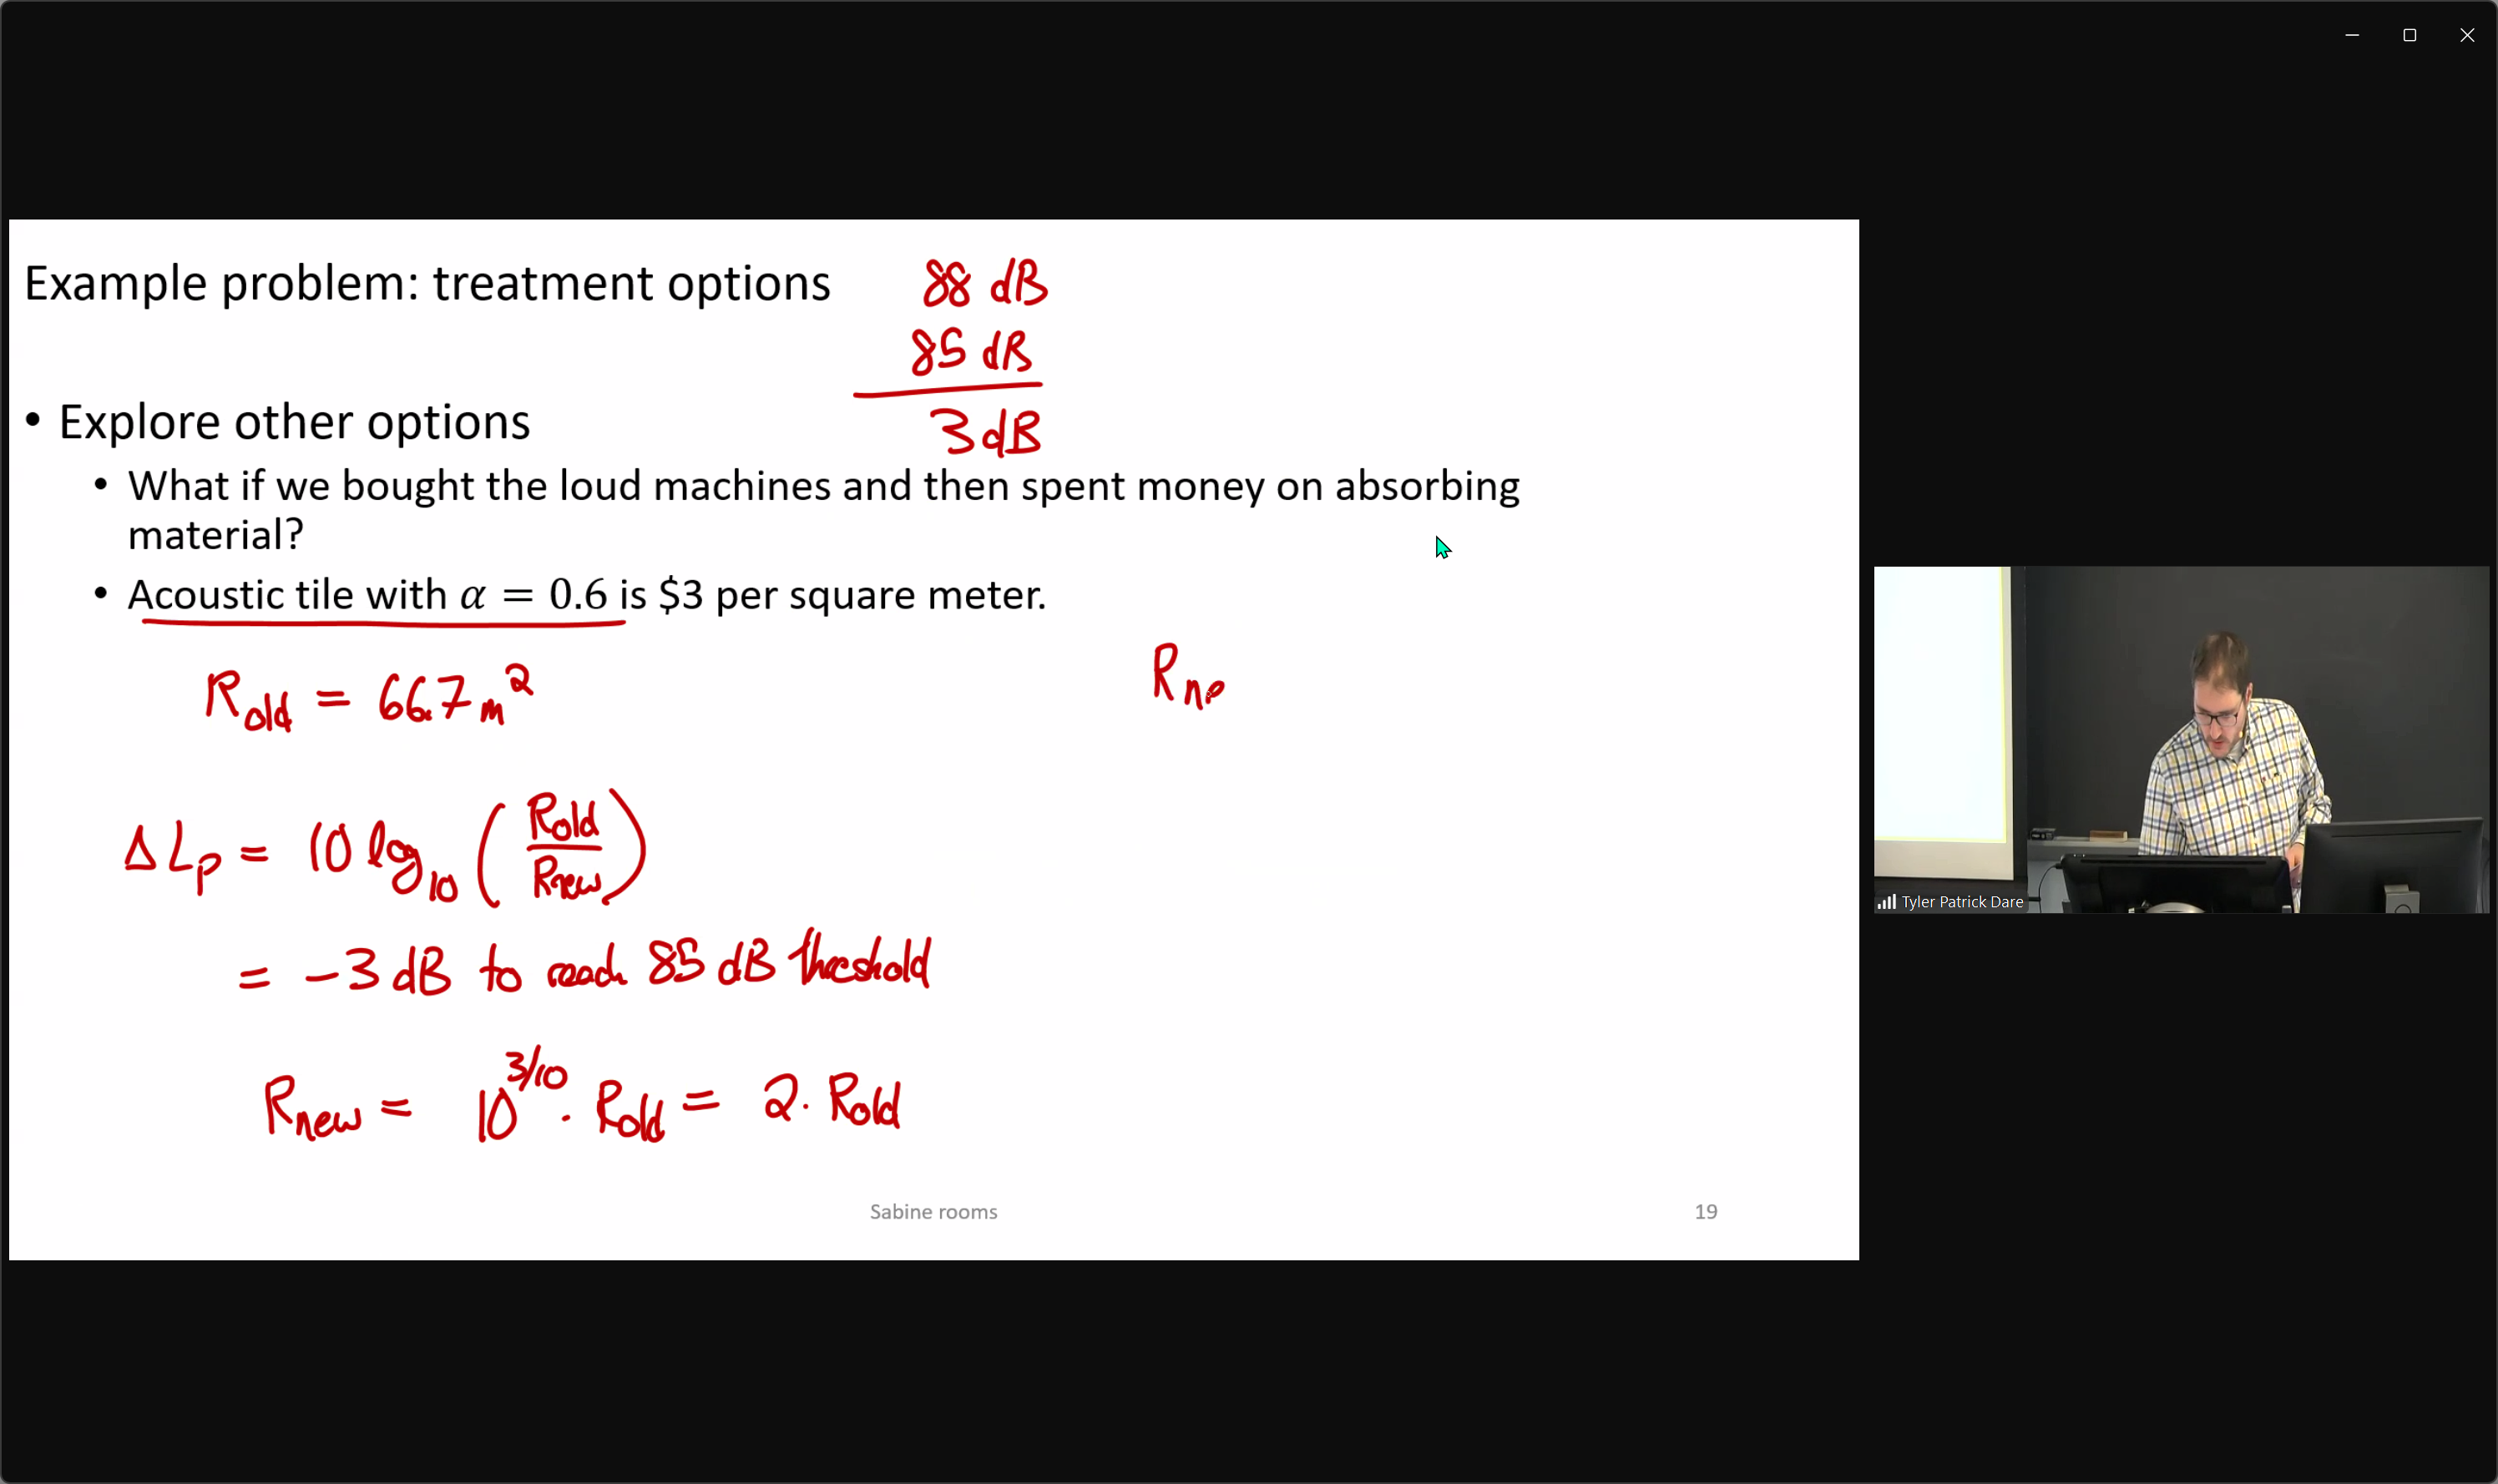 Example problem: treatment options
88 dB
85 dB
3 dB
• Explore other options
• What if we bought the loud machines and then spent money on absorbing
material?
• Acoustic tile with α = 0.6 is $3 per square meter.
R old = 66.7 m²
R ne
Δ Lp = 10 log₁₀ (Rold / Rnew)
= -3 dB to reach 85 dB threshold
Rnew = 10^3/10 · Rold = 2 · Rold
Sabine rooms
19
Tyler Patrick Dare